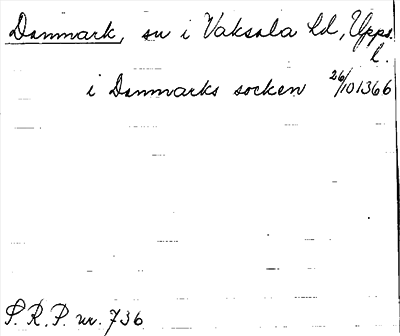 Danmark, sn i Vaksala hd, Upps.
l.
i Danmarks socken 26/10 1366
S.R.P. nr. 736